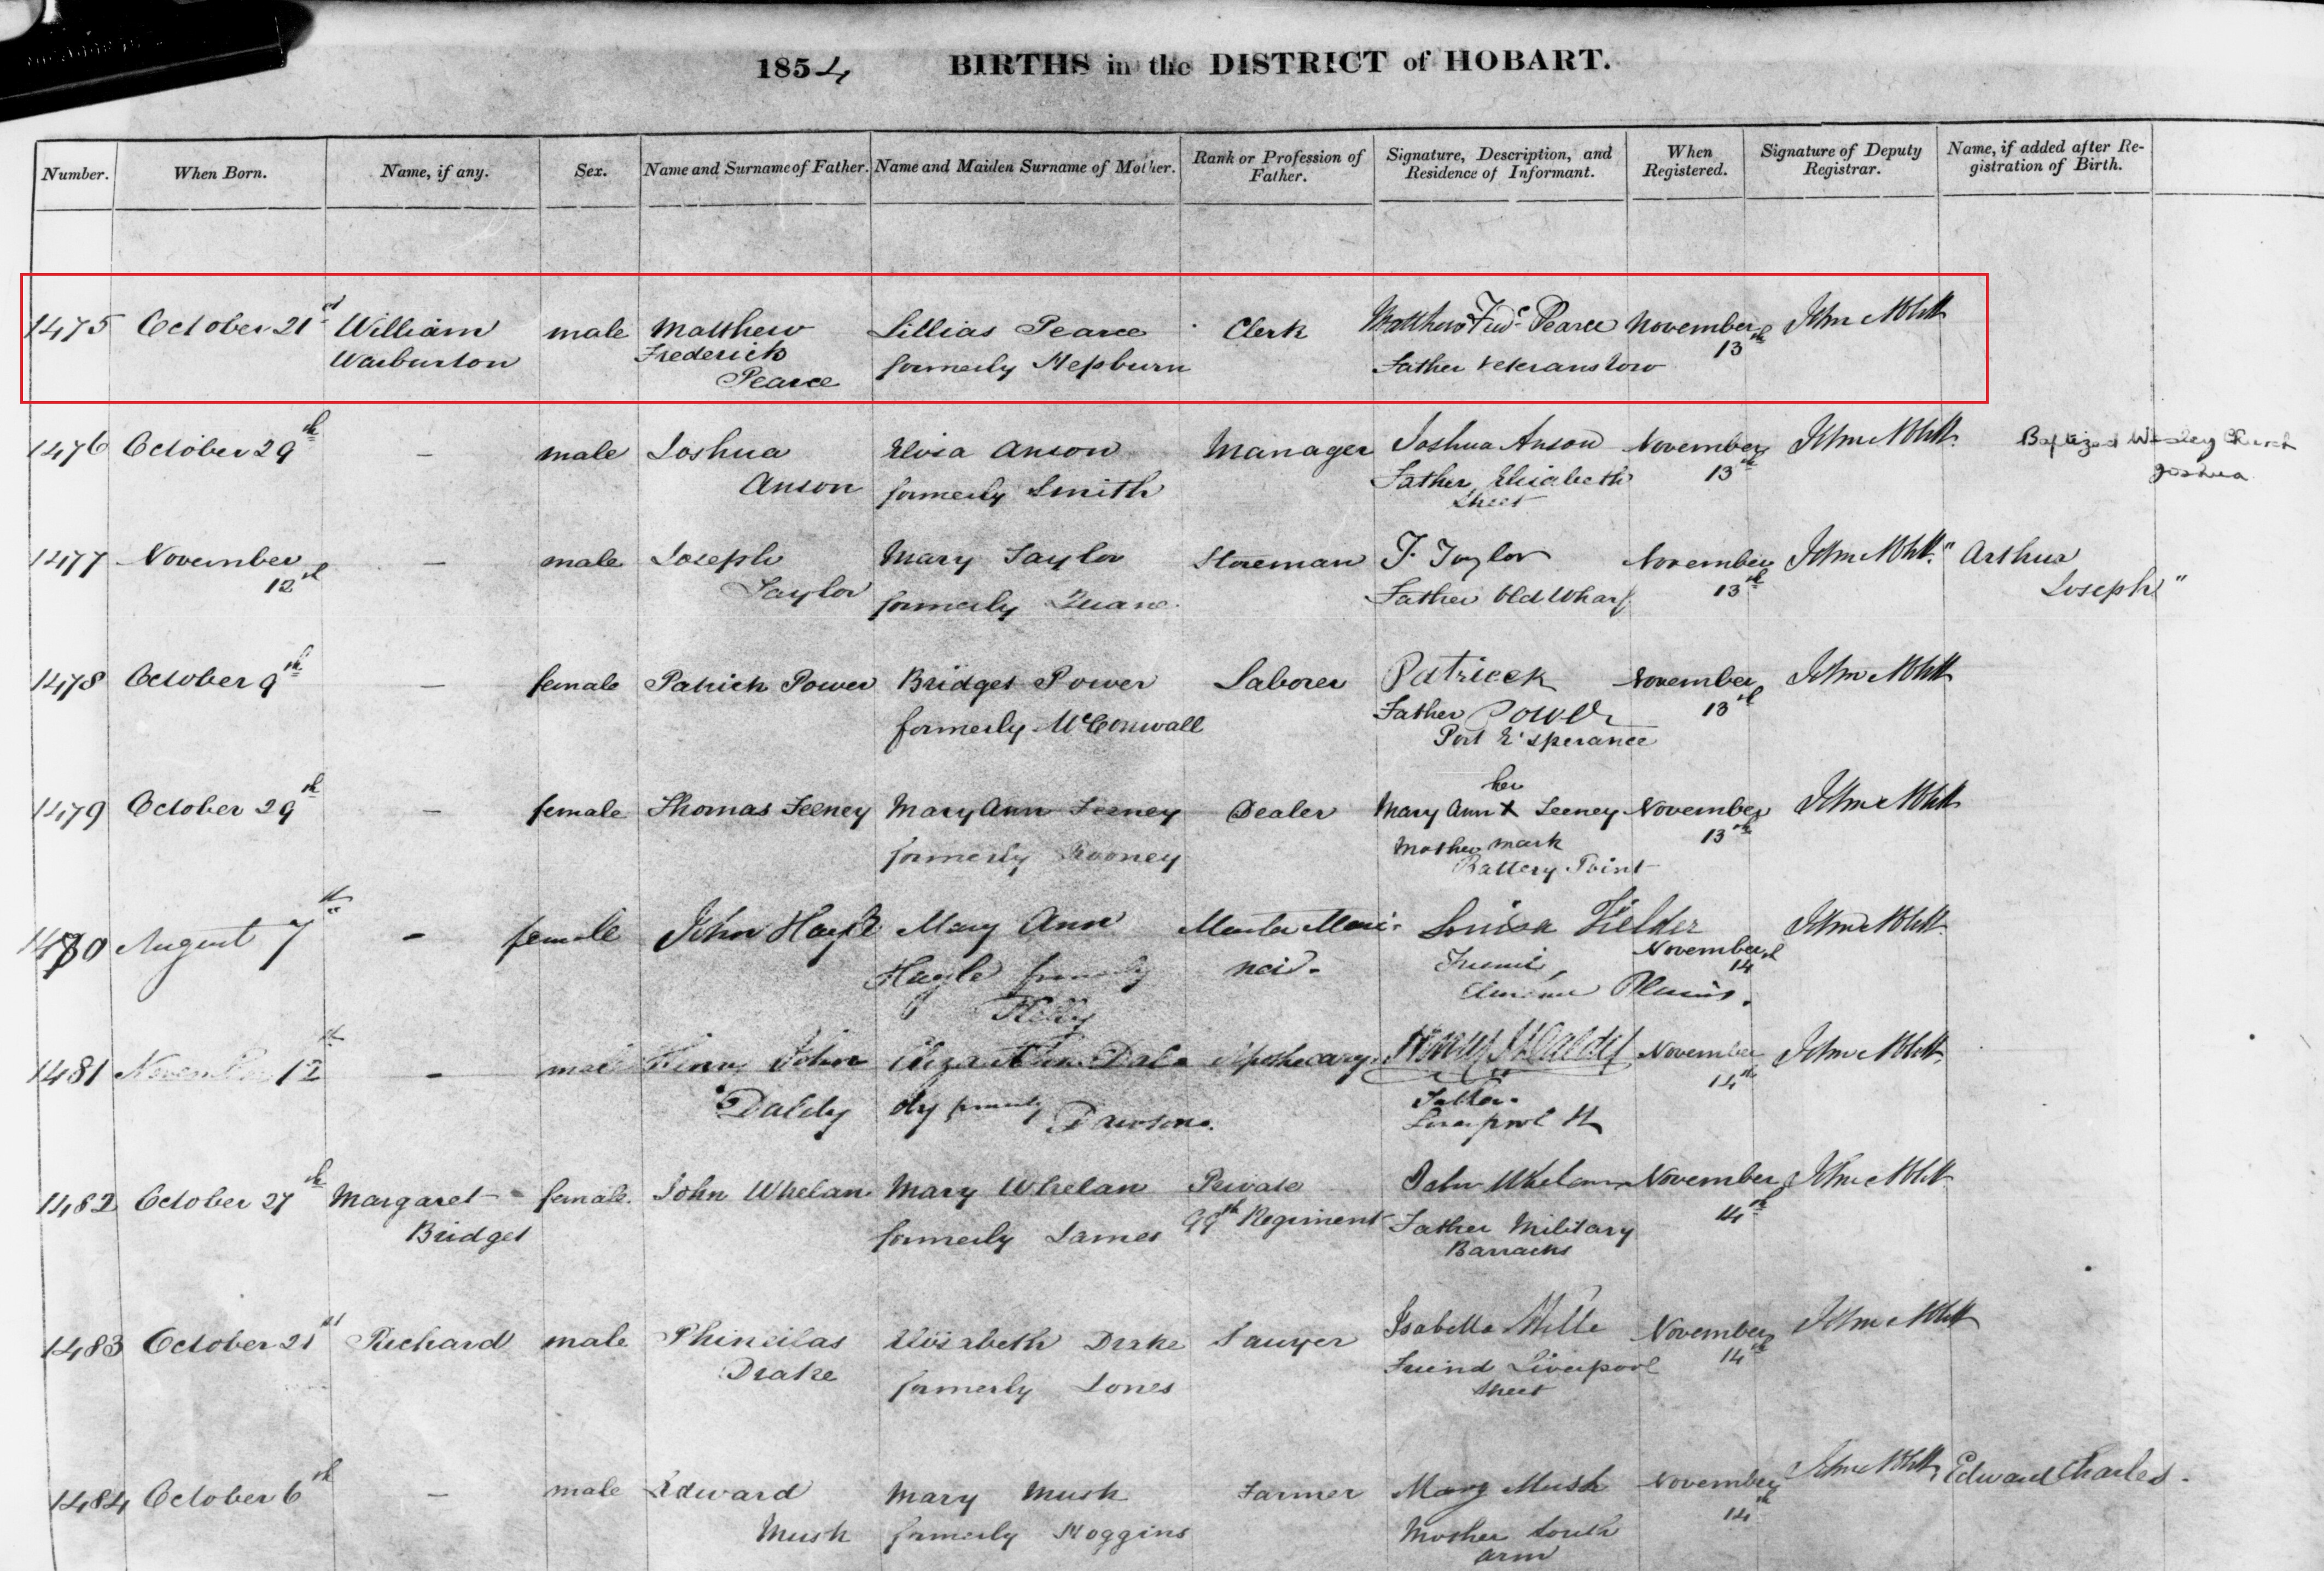 1854 BIRTHS in the DISTRICT of HOBART.
Number. When Born. Name, if any. Sex. Name and Surname of Father. Name and Maiden Surname of Mother. Rank or Profession of Father. Signature, Description, and Residence of Informant. When Registered. Signature of Deputy Registrar. Name, if added after Registration of Birth.
1475 October 21st William male Matthew Lillias Pearce Clerk Matthew Fredc Pearce November
Warburton Frederick formerly Hepburn Father Veterans Row 13th
Pearce
1476 October 29th – male Joshua Eliza Anson Manager Joshua Anson November Baptized Wesley Church
Anson formerly Smith Father Elizabeth 13th Joshua
Street
1477 November – male Joseph Mary Taylor Storeman J. Taylor November "Arthur
12th Taylor formerly Father Old Wharf 13th Joseph"
1478 October 9th – female Patrick Power Bridget Power Laborer Patrick November
formerly McConwall Father Power 13th
Port Esperance
1479 October 29th – female Thomas Feeney Mary Ann Feeney Dealer her November
formerly Rooney Mary Ann X Feeney 13th
Mother mark
Battery Point
1480 August 7th – female John Mary Ann Master Mari- Louisa Fielder November
formerly ner. Friend, 14th
Plains.
1481 November 12th – male John Apothecary November
Daldy dy formerly Dawson. Father 14th
Liverpool St
1482 October 27th Margaret female John Whelan Mary Whelan Private John Whelan November
Bridget formerly James 99th Regiment Father Military 14th
Barracks
1483 October 21st Richard male Phineilas Elizabeth Drake Sawyer Isabella November
Drake formerly Jones Friend Liverpool 14th
Street
1484 October 6th – male Edward Mary Mush Farmer Mary Mush November Edward Charles.
Mush formerly Hoggins Mother South 14th
Arm